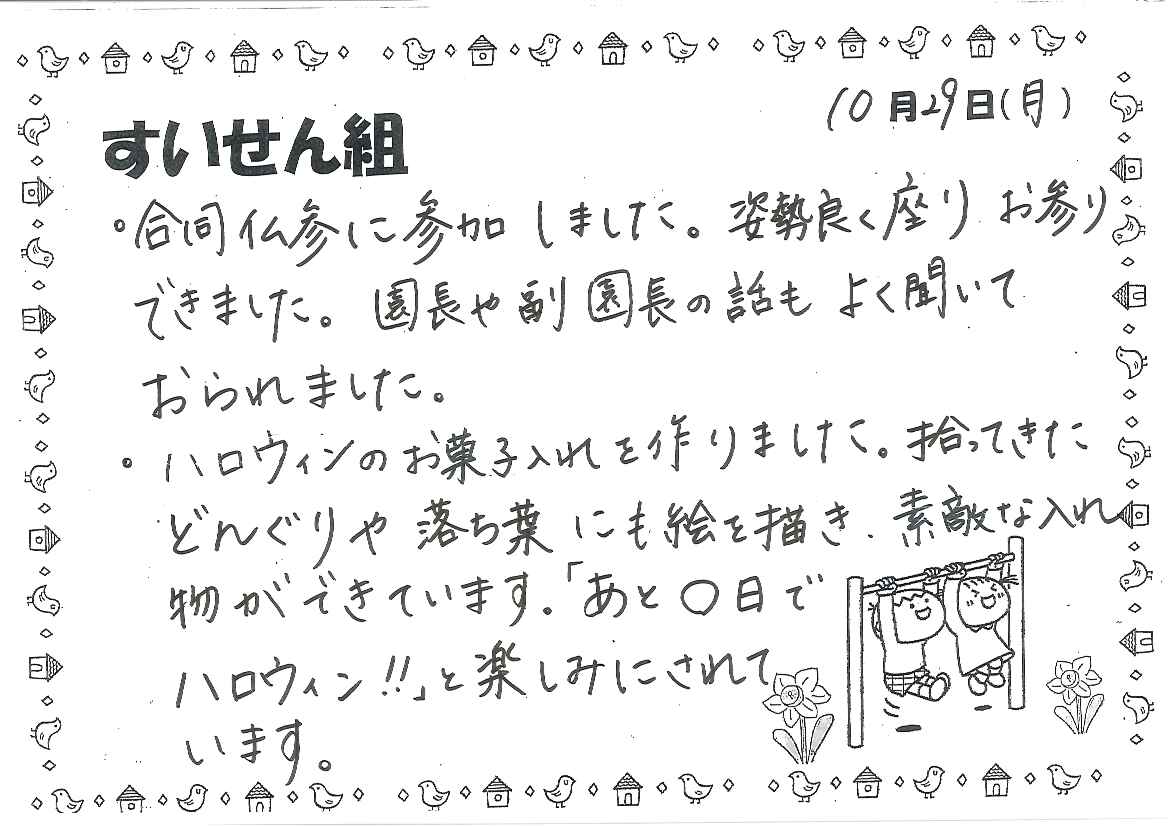 10月29日(月)
すいせん組
・合同仏参に参加しました。姿勢良く座りお参り
できました。園長や副園長の話もよく聞いて
おられました。
・ハロウィンのお菓子入れを作りました。拾ってきた
どんぐりや落ち葉にも絵を描き、素敵な入れ
物ができています。「あと〇日で
ハロウィン!!」と楽しみにされて
います。